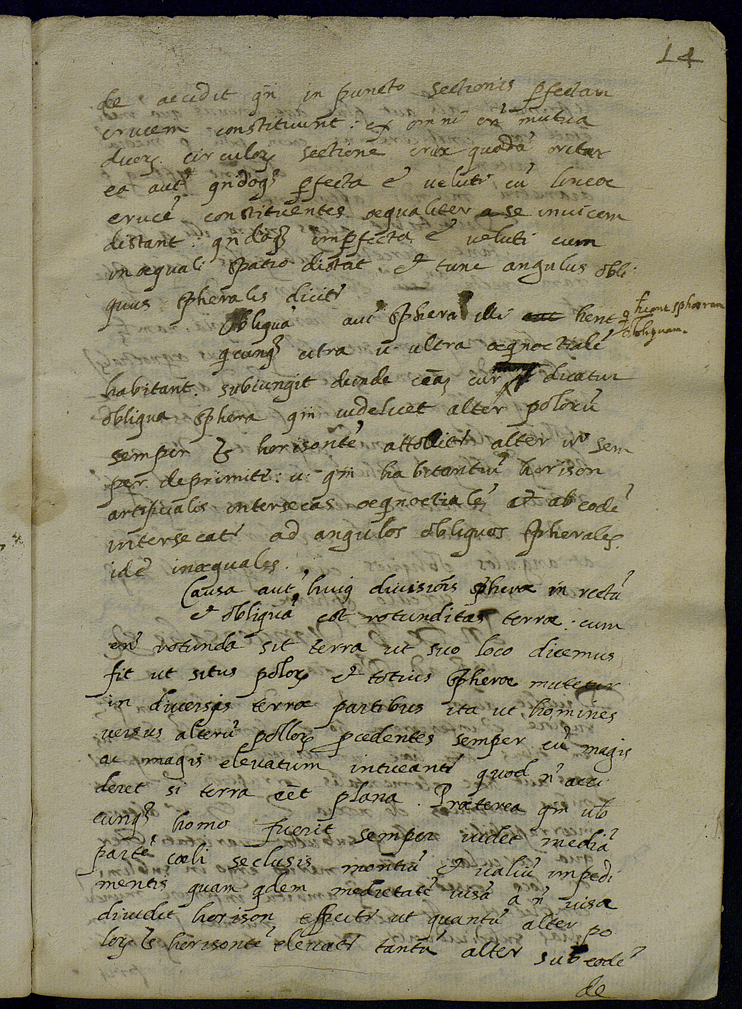 14
de accidit qñ in puncto sectionis pfectam
crucem constituunt: ex omni en̄ mutua
duorȝ circulorȝ sectione crux quaedā oritur
ea aut̄ qn̄doqȝ pfecta ē veluti cū lineae
crucē constituentes aequaliter a se invicem
distant: qn̄doqȝ impfecta ē veluti cum
inaequali spatio distāt et tunc angulus obli
quus spheralis dicit̄
Obliquā aut̄ spherā illi hent q
hent spheram obliquam.
qcunqȝ citra u. ultra aeqnoctialē
habitant. subiungit deinde cāȝ cur dicatur
obliqua sphera qm̄ videlicet alter polorū
semper sȝ horisontē attollit̄ alter vō sem
per deprimit̄: u. qm̄ habitantiū horison
artificialis intersecās aeqnoctialē at ab eodē
intersecat̄ ad angulos obliquos spherales,
idē inaequales.
Causa aut̄ huiȝ divisiōis spherae in rectā
et obliquā est rotunditas terrae: cum
en̄ rotunda sit terra ut suo loco dicemus
fit ut situs polorȝ et totius spherae mutetur
in diversis terrae partibus ita ut homines
versus alterū pollorȝ pcedentes semper eū magis
ac magis elevatum intueant̄ quod n̄ acci
deret si terra eēt plana. Praeterea qm̄ ub
cunqȝ homo fuerit semper videt mediā
partē coeli seclusis montiū et valiū impedi
mentis quam qdem medietatē visā a n̄ visa
dividit horison efficit̄ ut quantū alter po
lorȝ sȝ horisontē elevat̄ tantū alter sub eodē
de